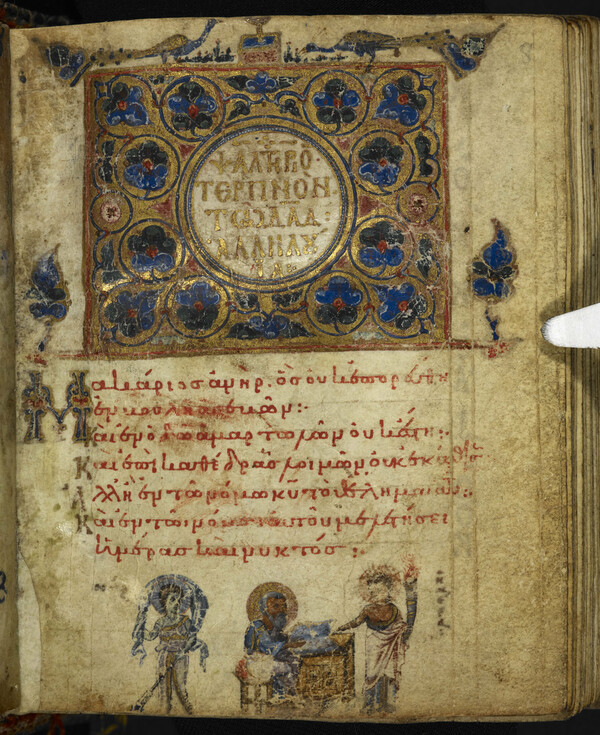 ΤΕΡΠΝΟΝ
Μακάριος ἀνήρ, ὃς οὐκ ἐπορεύθη
ἐν βουλῇ ἀσεβῶν:
Καὶ ἐν ὁδῷ ἁμαρτωλῶν οὐκ ἔστη:
Καὶ ἐπὶ καθέδρας λοιμῶν οὐκ ἐκάθισεν
Ἀλλ' ἢ ἐν τῶ νόμω κυ τὸ θέλημα αὐτοῦ:
Καὶ ἐν τῶ νόμω αὐτοῦ μελετήσει
ἡμέρας καὶ νυκτός: